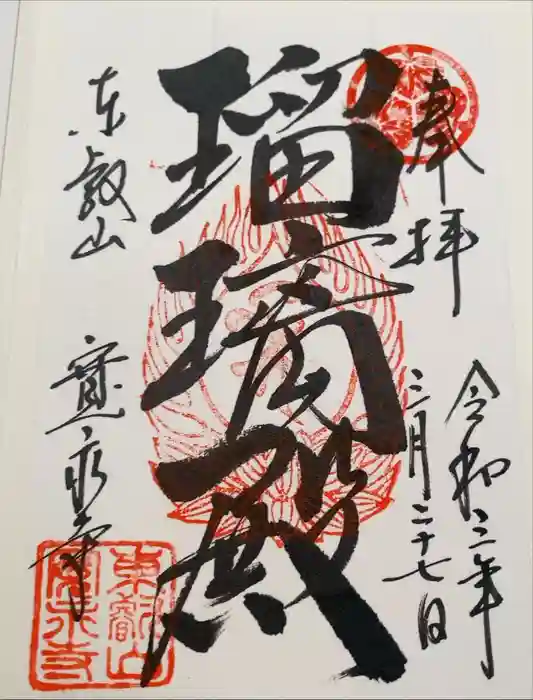 奉拝
令和二年
三月二十七日
瑠璃殿
東叡山
寛永寺
東叡山
寛永寺